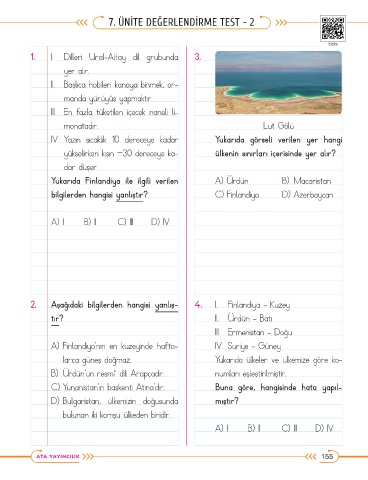 7. ÜNİTE DEĞERLENDİRME TEST - 2
1. I. Dilleri Ural-Altay dil grubunda
yer alır.
II. Başlıca hobileri kanoya binmek, or-
manda yürüyüş yapmaktır.
III. En fazla tüketilen içecek naneli li-
monatadır.
IV. Yazın sıcaklık 10 dereceye kadar
yükselirken kışın –30 dereceye ka-
dar düşer.
Yukarıda Finlandiya ile ilgili verilen
bilgilerden hangisi yanlıştır?
A) I B) II C) III D) IV
2. Aşağıdaki bilgilerden hangisi yanlış-
tır?
A) Finlandiya'nın en kuzeyinde hafta-
larca güneş doğmaz.
B) Ürdün'ün resmî dili Arapçadır.
C) Yunanistan'ın başkenti Atina'dır.
D) Bulgaristan, ülkemizin doğusunda
bulunan iki komşu ülkeden biridir.
3.
Lut Gölü
Yukarıda görseli verilen yer hangi
ülkenin sınırları içerisinde yer alır?
A) Ürdün B) Macaristan
C) Finlandiya D) Azerbaycan
4. I. Finlandiya - Kuzey
II. Ürdün - Batı
III. Ermenistan - Doğu
IV. Suriye - Güney
Yukarıda ülkeler ve ülkemize göre ko-
numları eşleştirilmiştir.
Buna göre, hangisinde hata yapıl-
mıştır?
A) I B) II C) III D) IV
ATA YAYINCILIK
155